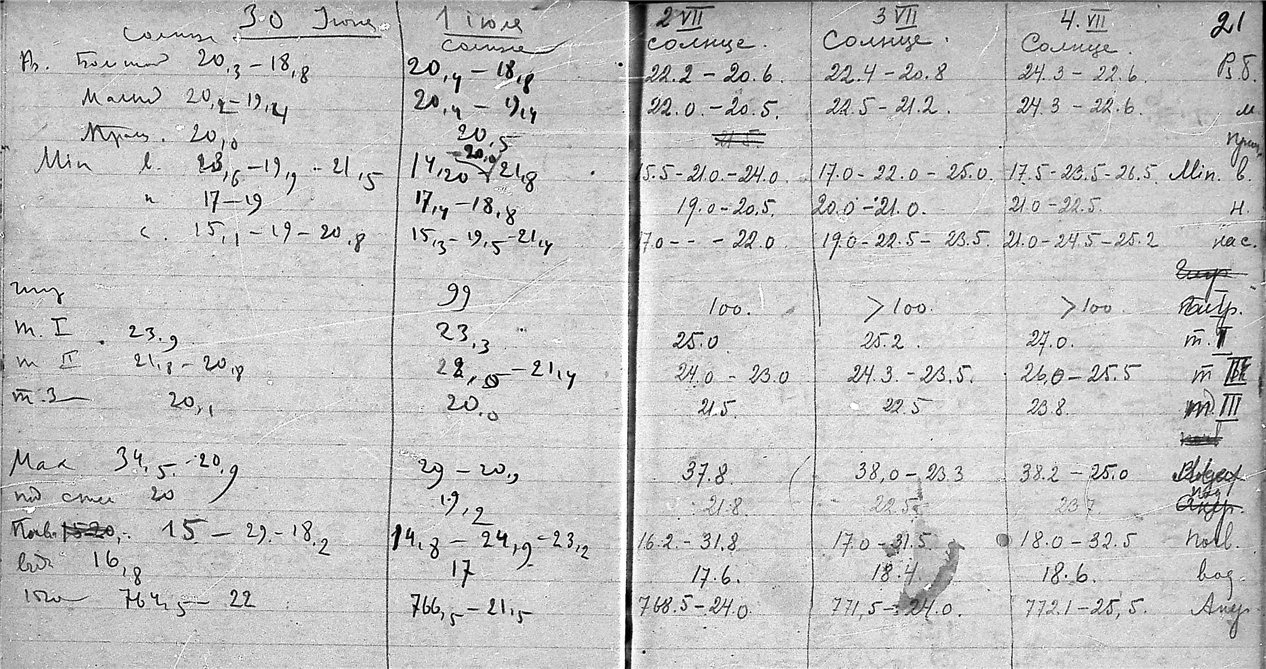 30 Июня
солнце
В. Большой 20,3 – 18,8
Малый 20,2 – 19,4
Пращ. 20,0
Min в. – 19,9 – 21,5
н 17 – 19
с. 15,1 – 19 – 20,8
т. I 23,9
т II 21,8 – 20,8
т 3 20,1
Max 34,5 – 20,9
под 20
Почв. 15 – 29 – 18,2
вод 16,8
764,5 – 22
1 июля
солнце
20,4 – 18,8
20,4 – 19,4
20,5
14, 20 21,8
17,4 – 18,8
15,3 – 19,5 – 21,4
99
23,3
– 21,4
20,0
29 – 20,9
19,2
14,8 – 24,9 – 23,2
17
766,5 – 21,5
2 VII
солнце.
22.2 – 20.6.
22.0. – 20.5.
15.5 – 21.0 – 24.0.
19.0 – 20.5.
17.0 – - – 22.0.
100.
25.0.
24.0 – 23.0
21.5.
37.8.
21.8.
16.2. – 31.8.
17.6.
768.5 – 24.0.
3 VII
Солнце.
22.4 – 20.8
22.5 – 21.2.
17.0 – 22.0 – 25.0.
20.0 – 21.0.
19.0 – 22.5 – 23.5.
>100.
25.2.
24.3. – 23.5.
22.5
38,0 – 23.3
22.5.
17.0 – 31.5.
18.4.
771,5 – 24.0.
4. VII
21
Солнце.
24.3 – 22.6.
24.3 – 22.6.
м
17.5 – 23.5 – 26.5. Min. в.
21.0 – 22.5. н.
21.0 – 24.5 – 25.2 нас.
>100
27.0. т. I
26,0 – 25.5 т II
23.8. III
38.2 – 25.0
23.7 под
18.0 – 32.5 почв.
18.6. вод.
772.1 – 25,5.